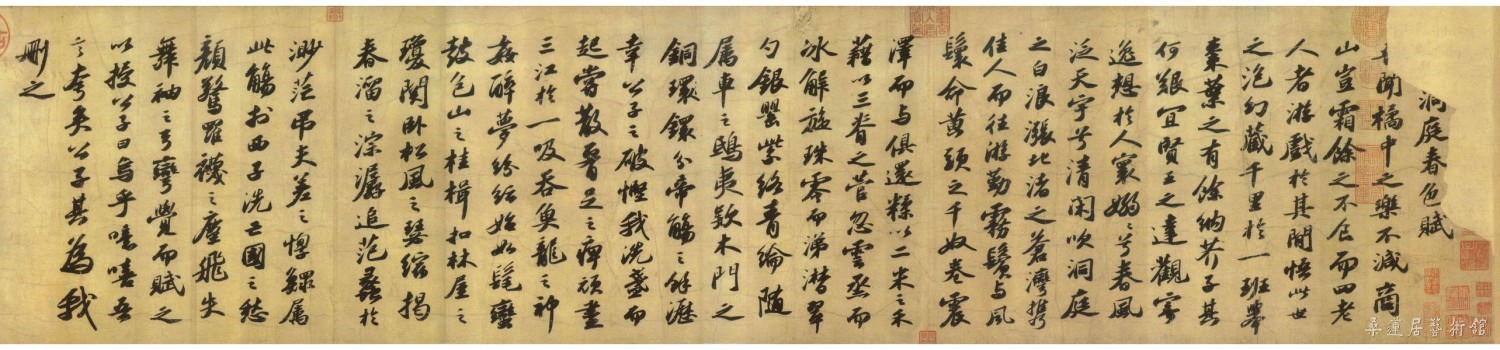 洞庭春色賦
聞橘中之樂不減商
山豈霜餘之不食而四老
人者游戲於其間悟此世
之泡幻藏千里於一班舉
棗葉之有餘納芥子其
何艱宜賢王之達觀寄
逸想於人寰嫋〻兮春風
泛天宇兮清閑吹洞庭
之白浪漲北渚之蒼灣攜
佳人而往游勤霧鬢與風
鬟命黃頭之千奴卷震
澤而與俱還糅以二米之禾
藉以三脊之菅忽雲烝而
冰解旋珠零而涕潸翠
勺銀罌紫絡青綸隨
屬車之鴟夷款木門之
銅環鐶分帝觴之餘瀝
幸公子之破慳我洗盞而
起嘗散腰足之痺頑盡
三江於一吸吞魚龍之神
姦醉夢紛紜始如髦蠻
鼓包山之桂楫扣林屋之
瓊關臥松風之瑟縮揭
春溜之淙潺追范蠡於
渺茫吊夫差之惸鰥屬
此觴於西子洗亡國之愁
顏驚羅襪之塵飛失
舞袖之弓彎覺而賦之
以授公子曰烏乎噫嘻吾
言夸矣公子其為我
刪之
桑蓮居藝術館